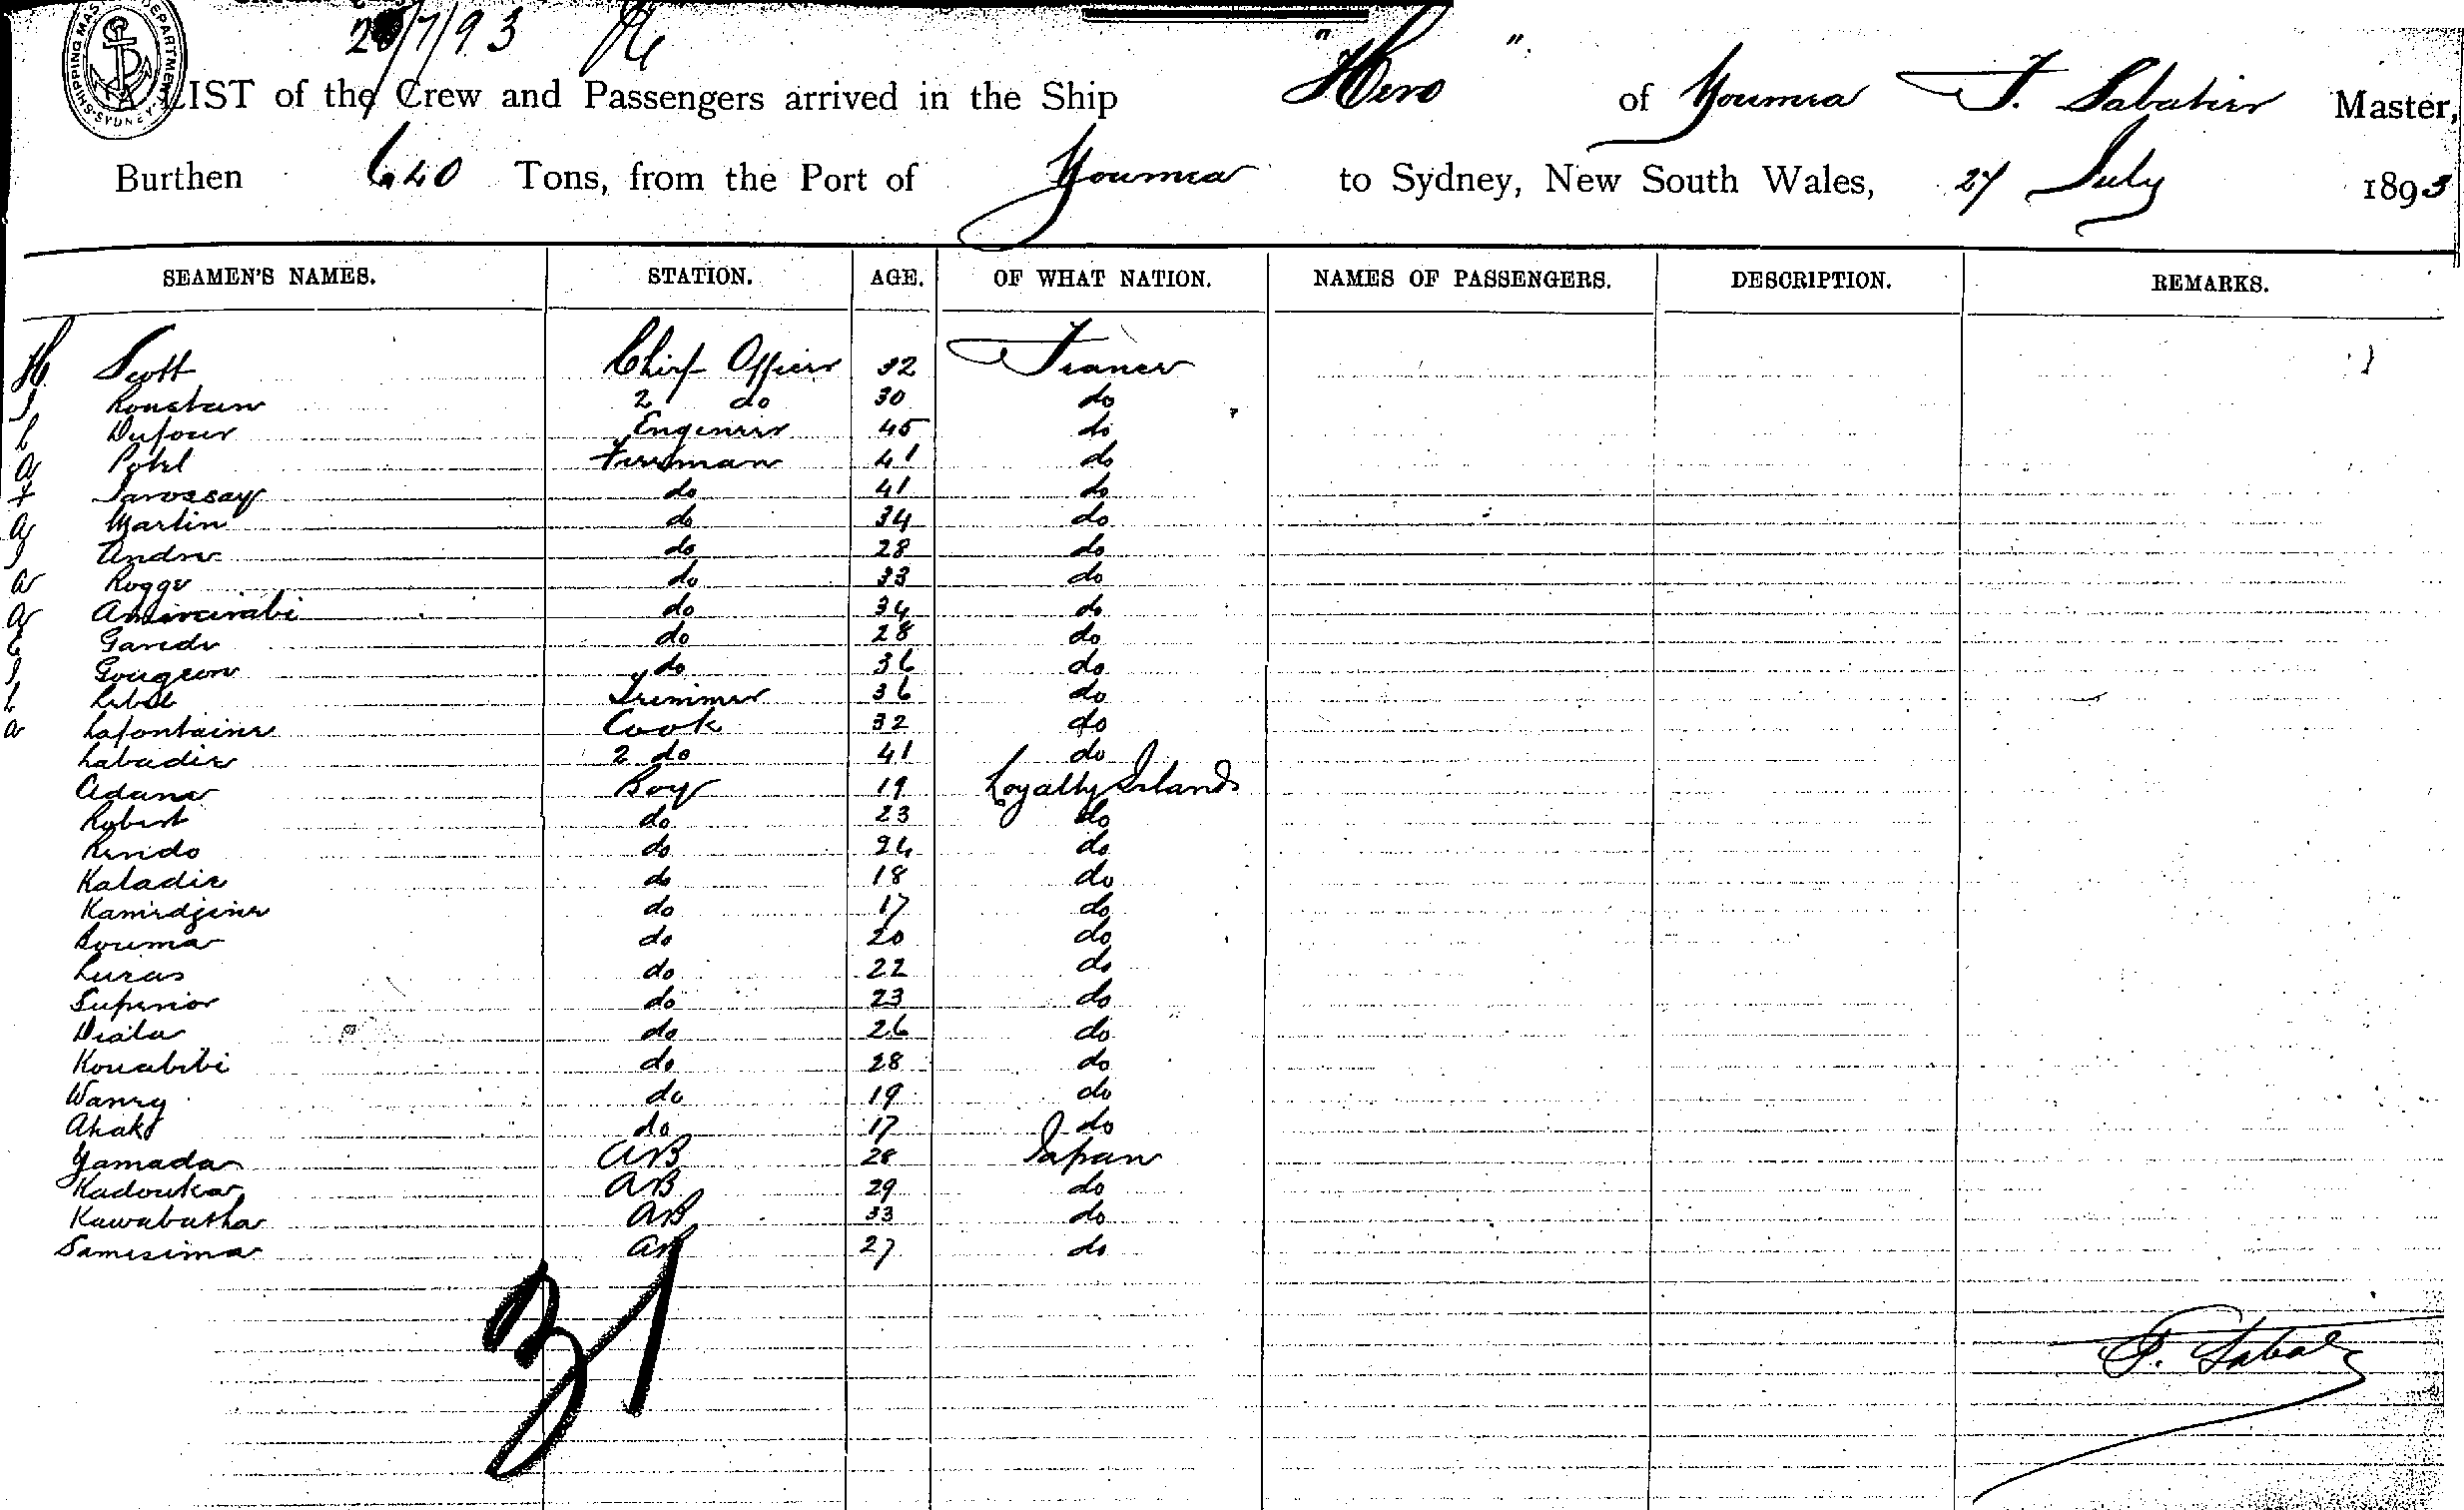 SHIPPING MASTER'S DEPARTMENT SYDNEY
/7/93
A LIST of the Crew and Passengers arrived in the Ship "Hero" of Noumea F. Sabatier Master,
Burthen 640 Tons, from the Port of Noumea to Sydney, New South Wales, 27 July 1893
SEAMEN'S NAMES. STATION. AGE. OF WHAT NATION. NAMES OF PASSENGERS. DESCRIPTION. REMARKS.
H. Scott Chief Officer 32 France
J Roustan 2 do 30 do
L Dufour Engineer 45 do
A Potel Fireman 41 do
F Jarossay do 41 do
A Martin do 34 do
J Andre do 28 do
A Rogge do 33 do
A do 34 do
E Garede do 28 do
J Gougeon do 36 do
L Lebel Trimmer 36 do
A Lafontaine Cook 32 do
Labadie 2 do 41 do
Adane Boy 19 Loyalty Islands
Robert do 23 do
Rendo do 24 do
Kaladie do 18 do
Kamedjine do 17 do
Bouma do 20 do
Lucas do 22 do
Superior do 23 do
Diala do 26 do
Kouabibi do 28 do
Wanry do 19 do
Ahako do 17 do
Yamada AB 28 Japan
Kadouka AB 29 do
Kawabatha AB 33 do
Samesima AB 27 do
31
F. Sabatier